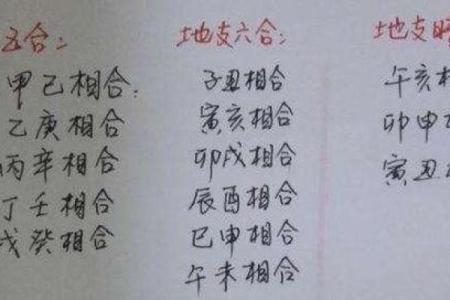 五合：
甲己相合：
乙庚相合
丙辛相合
丁壬相合
戊癸相合
地支六合：
子丑相合
寅亥相合
卯戌相合
辰酉相合
巳申相合
午未相合
地支暗
午亥相
卯申
寅丑